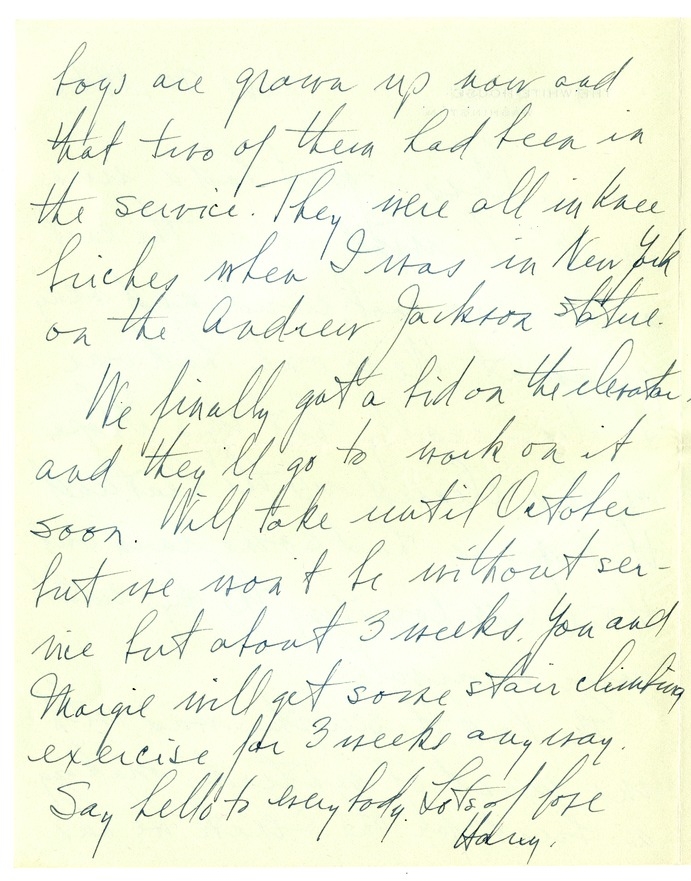 boys are grown up now and
that two of them had been in
the service. They were all in knee
briches when I was in New York
on the Andrew Jackson statue.
We finally got a bid on the elevator
and they'll go to work on it
soon. Will take until October
but we won't be without ser-
vice but about 3 weeks. You and
Margie will get some stair climbing
exercise for 3 weeks anyway.
Say hello to everybody. Lots of love
Harry.